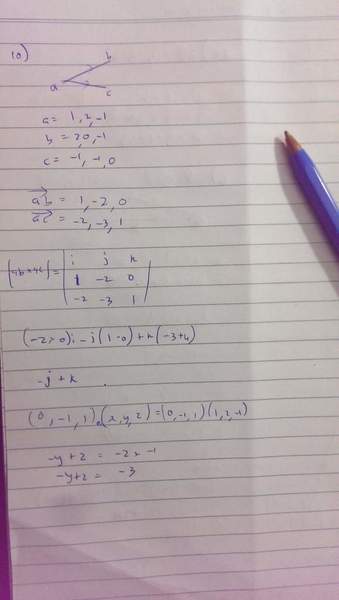 10)
b
a
c
a= 1,2,-1
b = 2,0,-1
c= -1,-1,0
ab = 1,-2,0
ac = -2,-3,1
|ab×ac| = | i j k
1 -2 0
-2 -3 1 |
(-2×0)i -j(1-0)+k(-3+4)
-j+k
(0,-1,1)•(x,y,z)=(0,-1,1)(1,2,-1)
-y+z = -2×-1
-y+z = -3